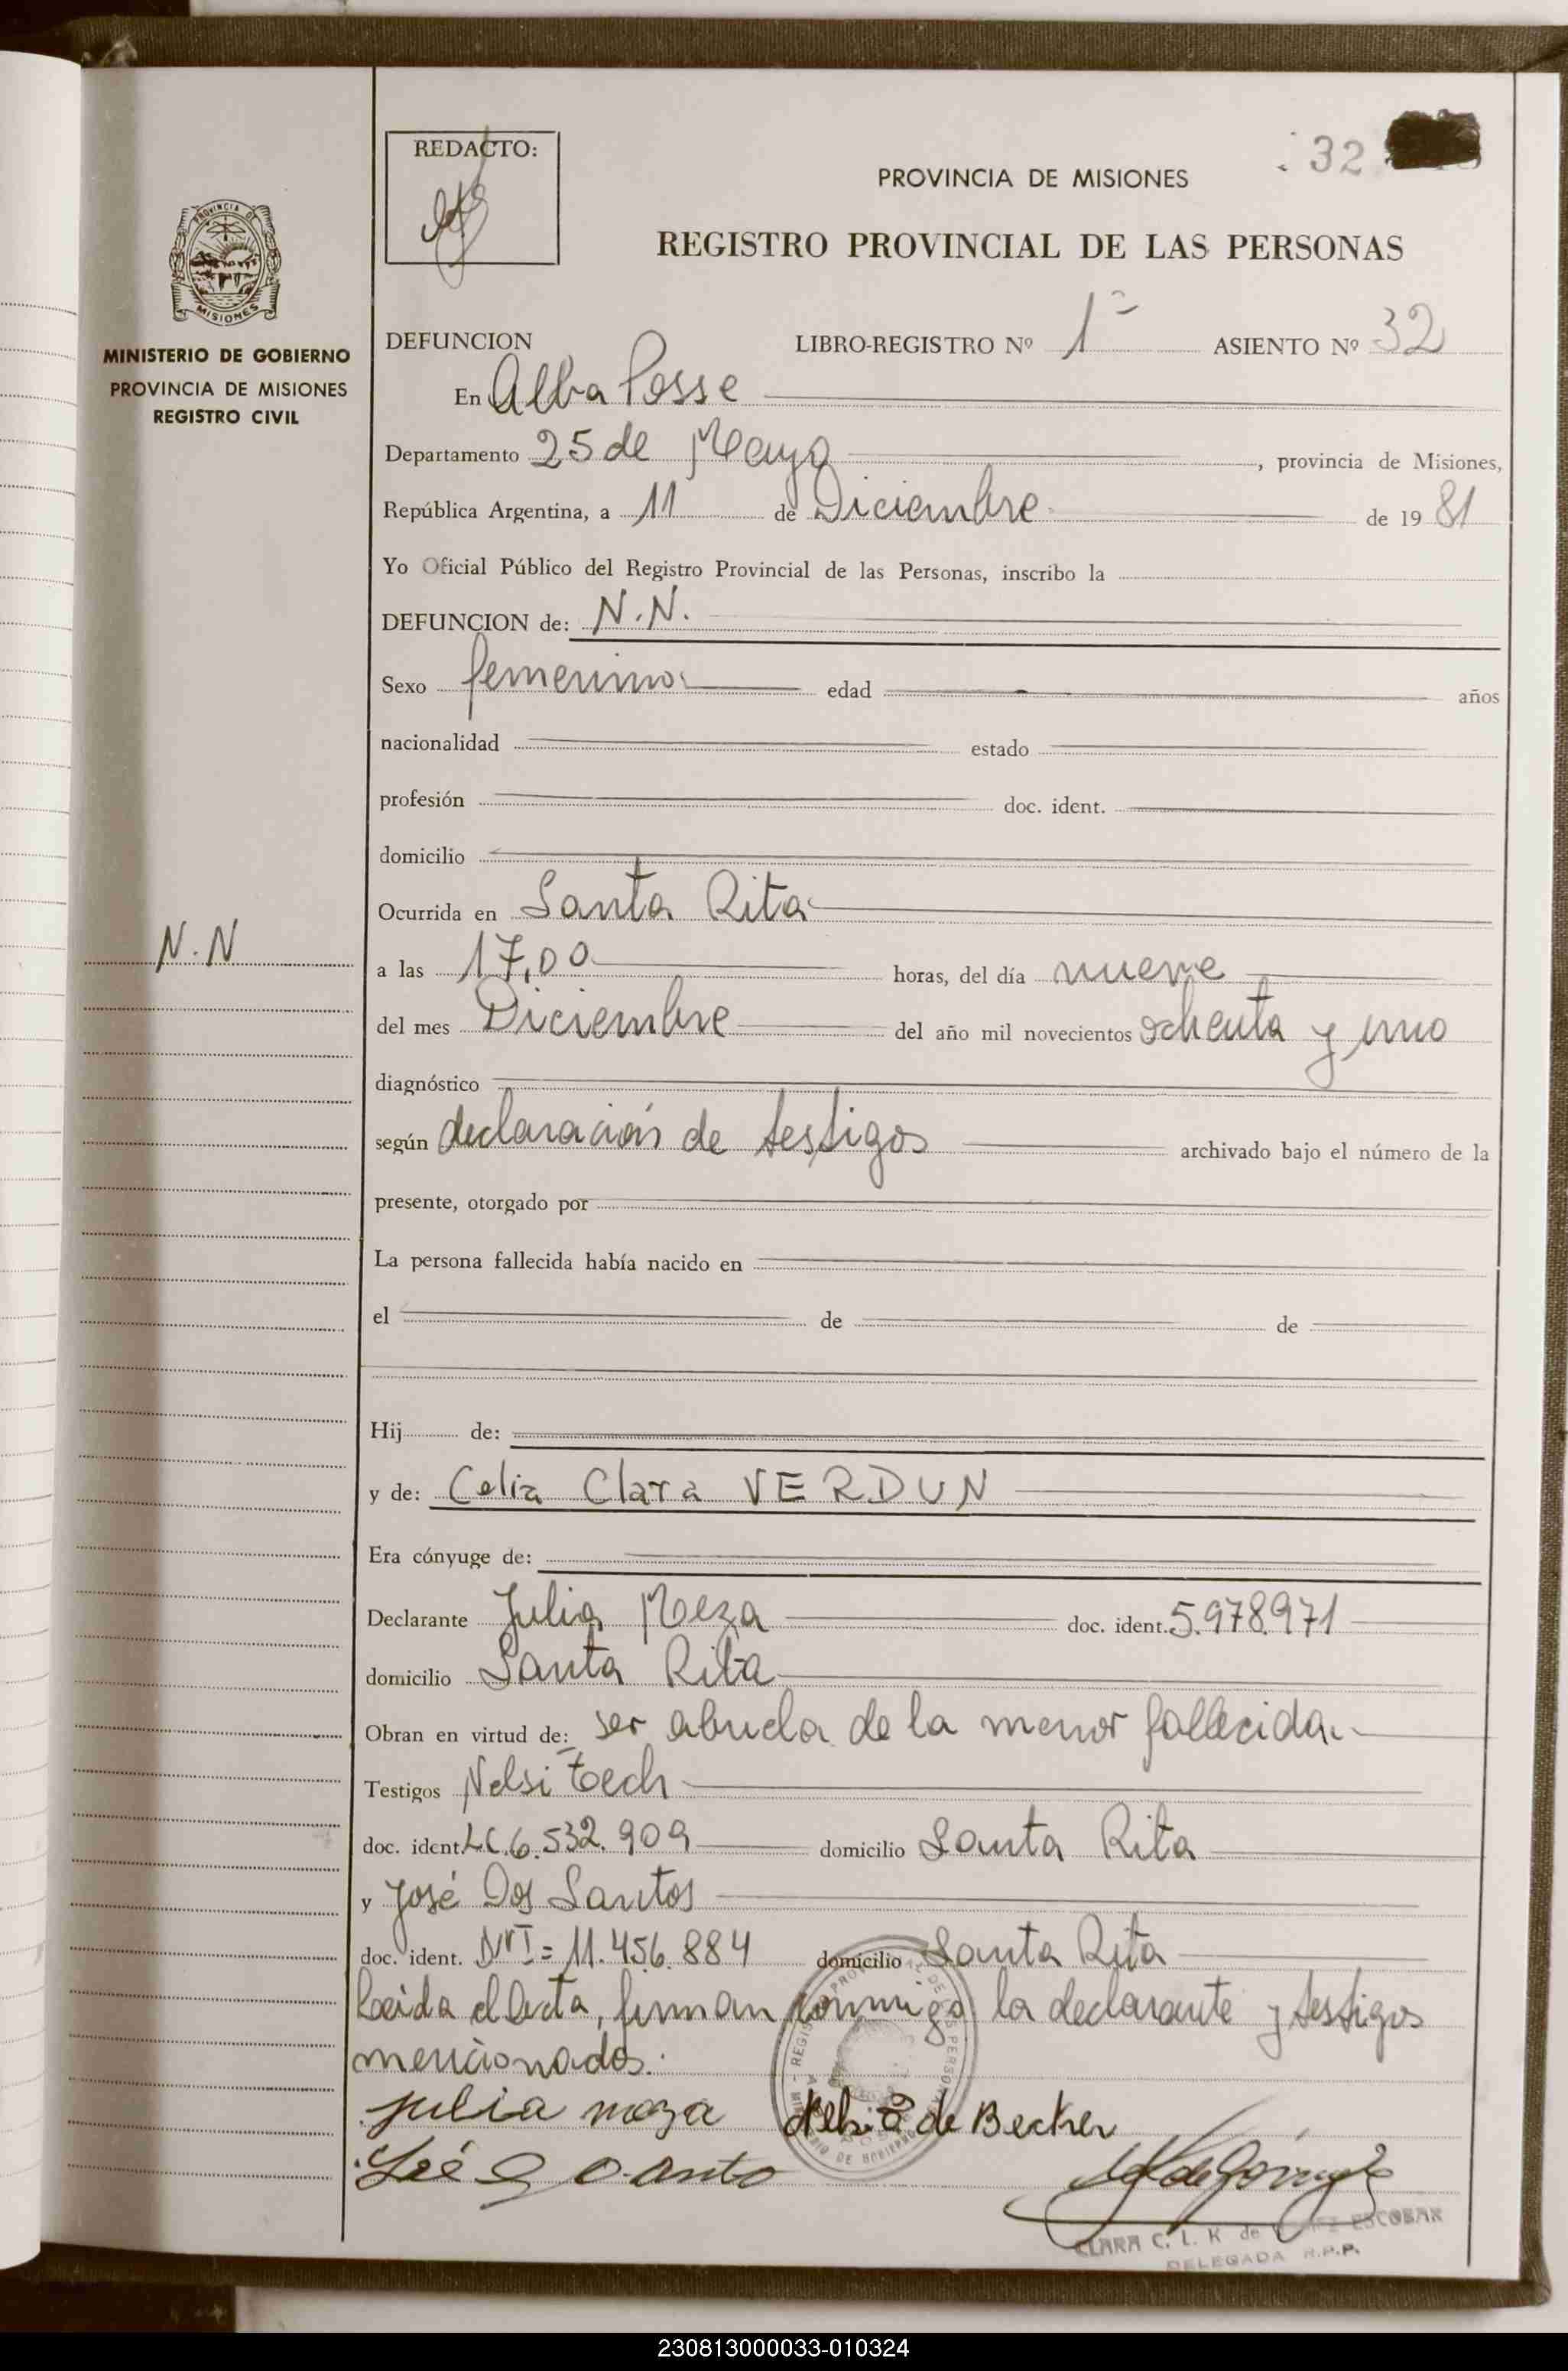 REDACTO:
32
PROVINCIA DE MISIONES
REGISTRO PROVINCIAL DE LAS PERSONAS
PROVINCIA DE
MISIONES
MINISTERIO DE GOBIERNO
PROVINCIA DE MISIONES
REGISTRO CIVIL
DEFUNCION LIBRO-REGISTRO Nº 1º ASIENTO Nº 32
En Alba Posse
Departamento 25 de Mayo, provincia de Misiones,
República Argentina, a 11 de Diciembre de 1981
Yo Oficial Público del Registro Provincial de las Personas, inscribo la
DEFUNCION de: N.N.
Sexo femenino edad años
nacionalidad estado
profesión doc. ident.
domicilio
Ocurrida en Santa Rita
N.N
a las 17,00 horas, del día nueve
del mes Diciembre del año mil novecientos ochenta y uno
diagnóstico
según declaración de testigos archivado bajo el número de la
presente, otorgado por
La persona fallecida había nacido en
el de de
Hij de:
y de: Celia Clara VERDUN
Era cónyuge de:
Declarante Julia Meza doc. ident. 5.978.971
domicilio Santa Rita
Obran en virtud de: ser abuela de la menor fallecida.
Testigos Nelsi
doc. ident. LC.6.532.909 domicilio Santa Rita
y José Dos Santos
doc. ident. DNI= 11.456.884 domicilio Santa Rita
Leída el Acta, firman conmigo la declarante y testigos
mencionados.
julia meza de Becker
CLARA C. L. K de ESCOBAR
DELEGADA R.P.P.
230813000033-010324